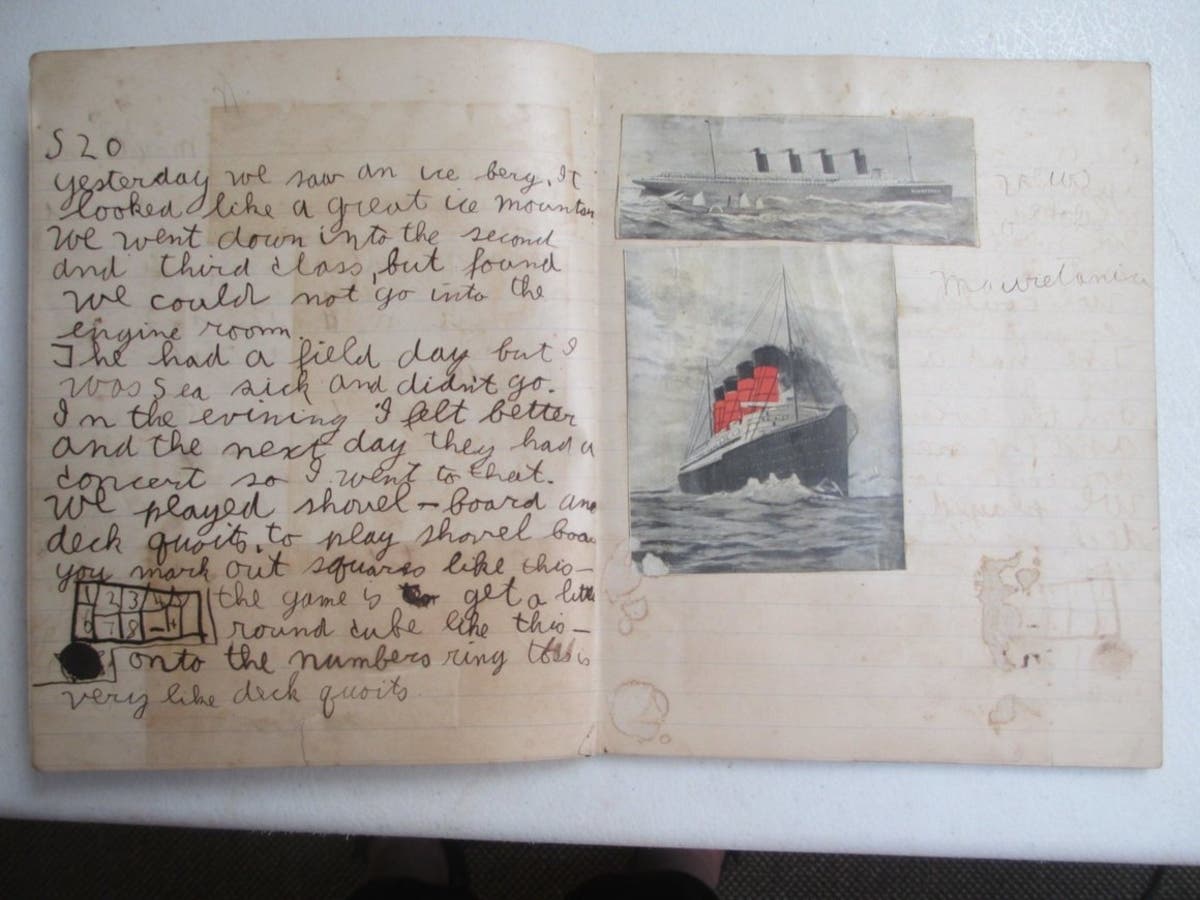 S 20
yesterday we saw an ice berg. It
looked like a great ice mountan
We went down into the second
and third class, but found
we could not go into the
engine room.
The had a field day but I
was sea sick and didn't go.
In the evining I felt better
and the next day they had a
concert so I went to that.
We played shovel-board and
deck quoits. to play shovel boa
you mark out squares like this—
1 2 3 4
6 7 8 — +
the game is get a little
round cube like this—
onto the numbers ring toss is
very like deck quoits
Mauretania